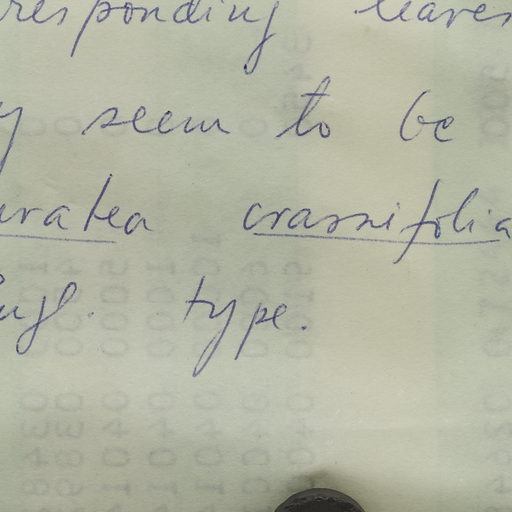 responding leaves
y seem to be
uratea crassifolia
Engl. type.